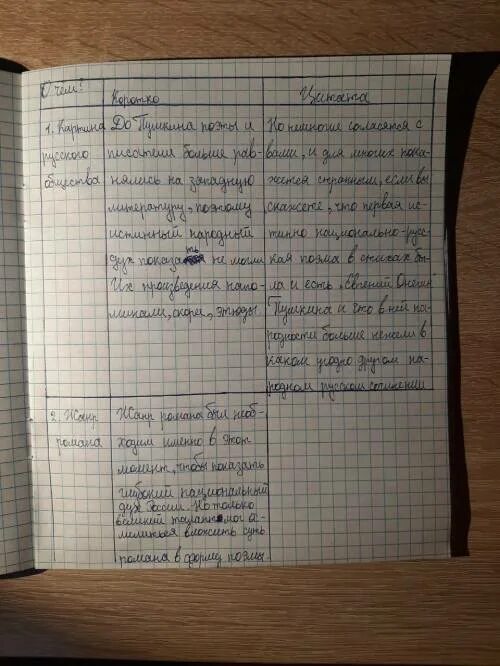 О чём?
Коротко
Цитата
1. Картина
русского
общества
До Пушкина поэты и
писатели больше рав-
нялись на западную
литературу, поэтому
истинный народный
дух показать не могли
Их произведения напо-
минали, скорее, этюды.
Но немногие согласятся с
вами, и для многих пока-
жется странным, если вы
скажете, что первая ис-
тинно национально-русс-
кая поэма в стихах бы-
ла и есть "Евгений Онегин"
Пушкина и что в ней на-
родности больше нежели в
каком угодно другом на-
родном русском сочинении
2. Жанр
романа
Жанр романа был необ-
ходим именно в этот
момент, чтобы показать
глубокий национальный
дух России. Но только
великий талант мог о-
мелиться вложить суть
романа в форму поэмы.